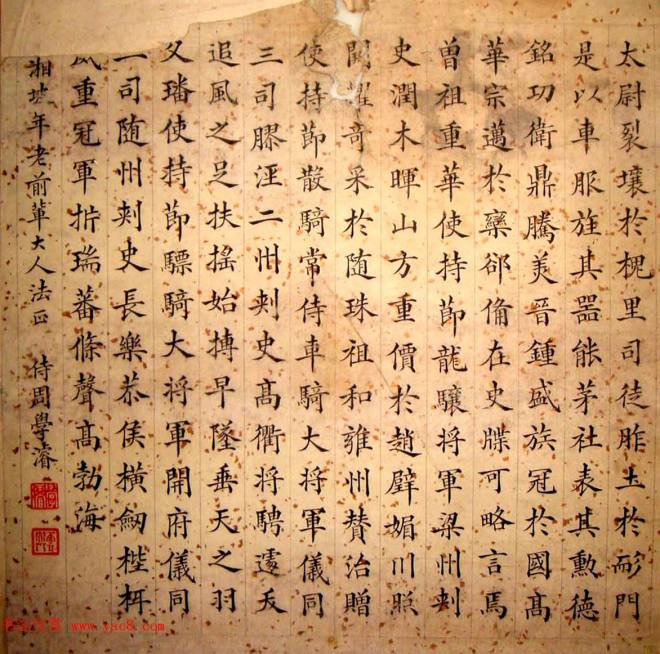 太尉裂壤於槐里司徒胙土於耏門
是以車服旌其器能茅社表其勳德
銘功衛鼎騰美晉鍾盛族冠於國高
華宗邁於欒郤俻在史牒可略言焉
曾祖重華使持節龍驤將軍梁州刺
史潤木暉山方重價於趙璧媚川照
闕耀奇采於随珠祖和雍州賛治贈
使持節散騎常侍車騎大将軍儀同
三司膠涇二州刺史高衢将騁遽夭
追風之足扶搖始摶早墜垂天之羽
父璠使持節驃騎大将軍開府儀同
三司随州刺史長樂恭侯橫劒梐枑
威重冠軍析瑞蕃條聲高勃海
湘坡年老前輩大人法正 侍周學濬
www.yac8.com